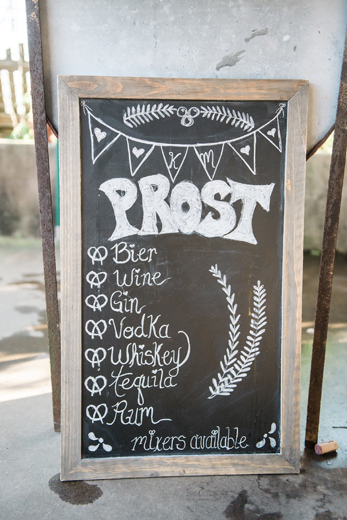 K M
PROST
Bier
Wine
Gin
Vodka
Whiskey
tequila
Rum
mixers available